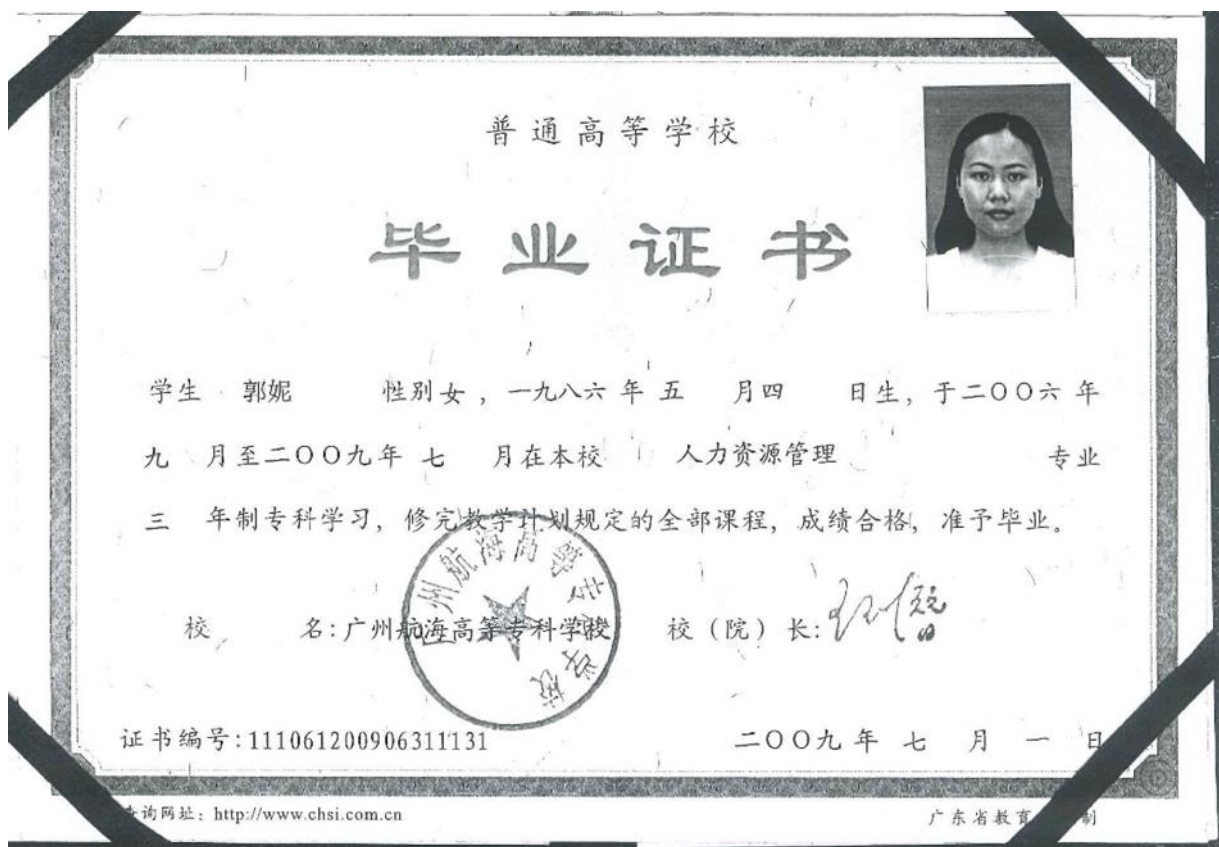 普通高等学校
毕业证书
学生 郭妮 性别 女 ，一九八六 年 五 月 四 日生，于二〇〇六 年
九 月至二〇〇九年 七 月在本校 人力资源管理 专业
三 年制专科学习，修完教学计划规定的全部课程，成绩合格，准予毕业。
广州航海高等专科学校
校 名：广州航海高等专科学校 校（院）长：
证书编号：111061200906311131 二〇〇九 年 七 月 一 日
查询网址：http://www.chsi.com.cn 广东省教育 制